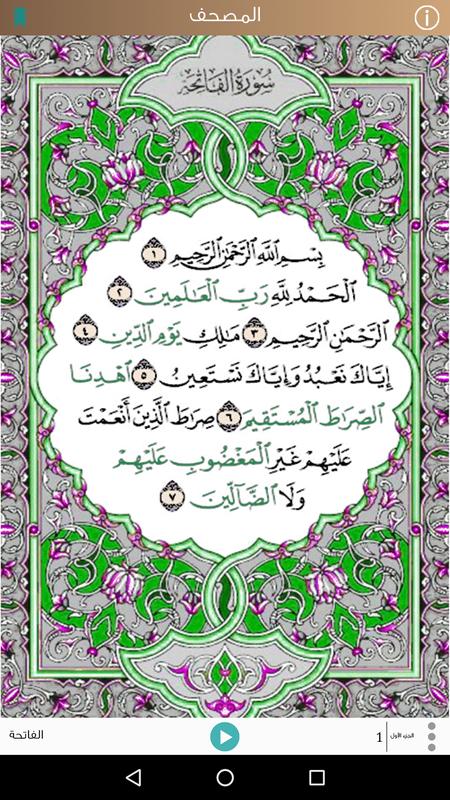 المصحف
سورة الفاتحة
بِسْمِ اللَّهِ الرَّحْمَٰنِ الرَّحِيمِ ١
الْحَمْدُ لِلَّهِ رَبِّ الْعَالَمِينَ ٢
الرَّحْمَٰنِ الرَّحِيمِ ٣ مَالِكِ يَوْمِ الدِّينِ ٤
إِيَّاكَ نَعْبُدُ وَإِيَّاكَ نَسْتَعِينُ ٥ اهْدِنَا
الصِّرَاطَ الْمُسْتَقِيمَ ٦ صِرَاطَ الَّذِينَ أَنْعَمْتَ
عَلَيْهِمْ غَيْرِ الْمَغْضُوبِ عَلَيْهِمْ
وَلَا الضَّالِّينَ ٧
الجزء الأول 1 الفاتحة